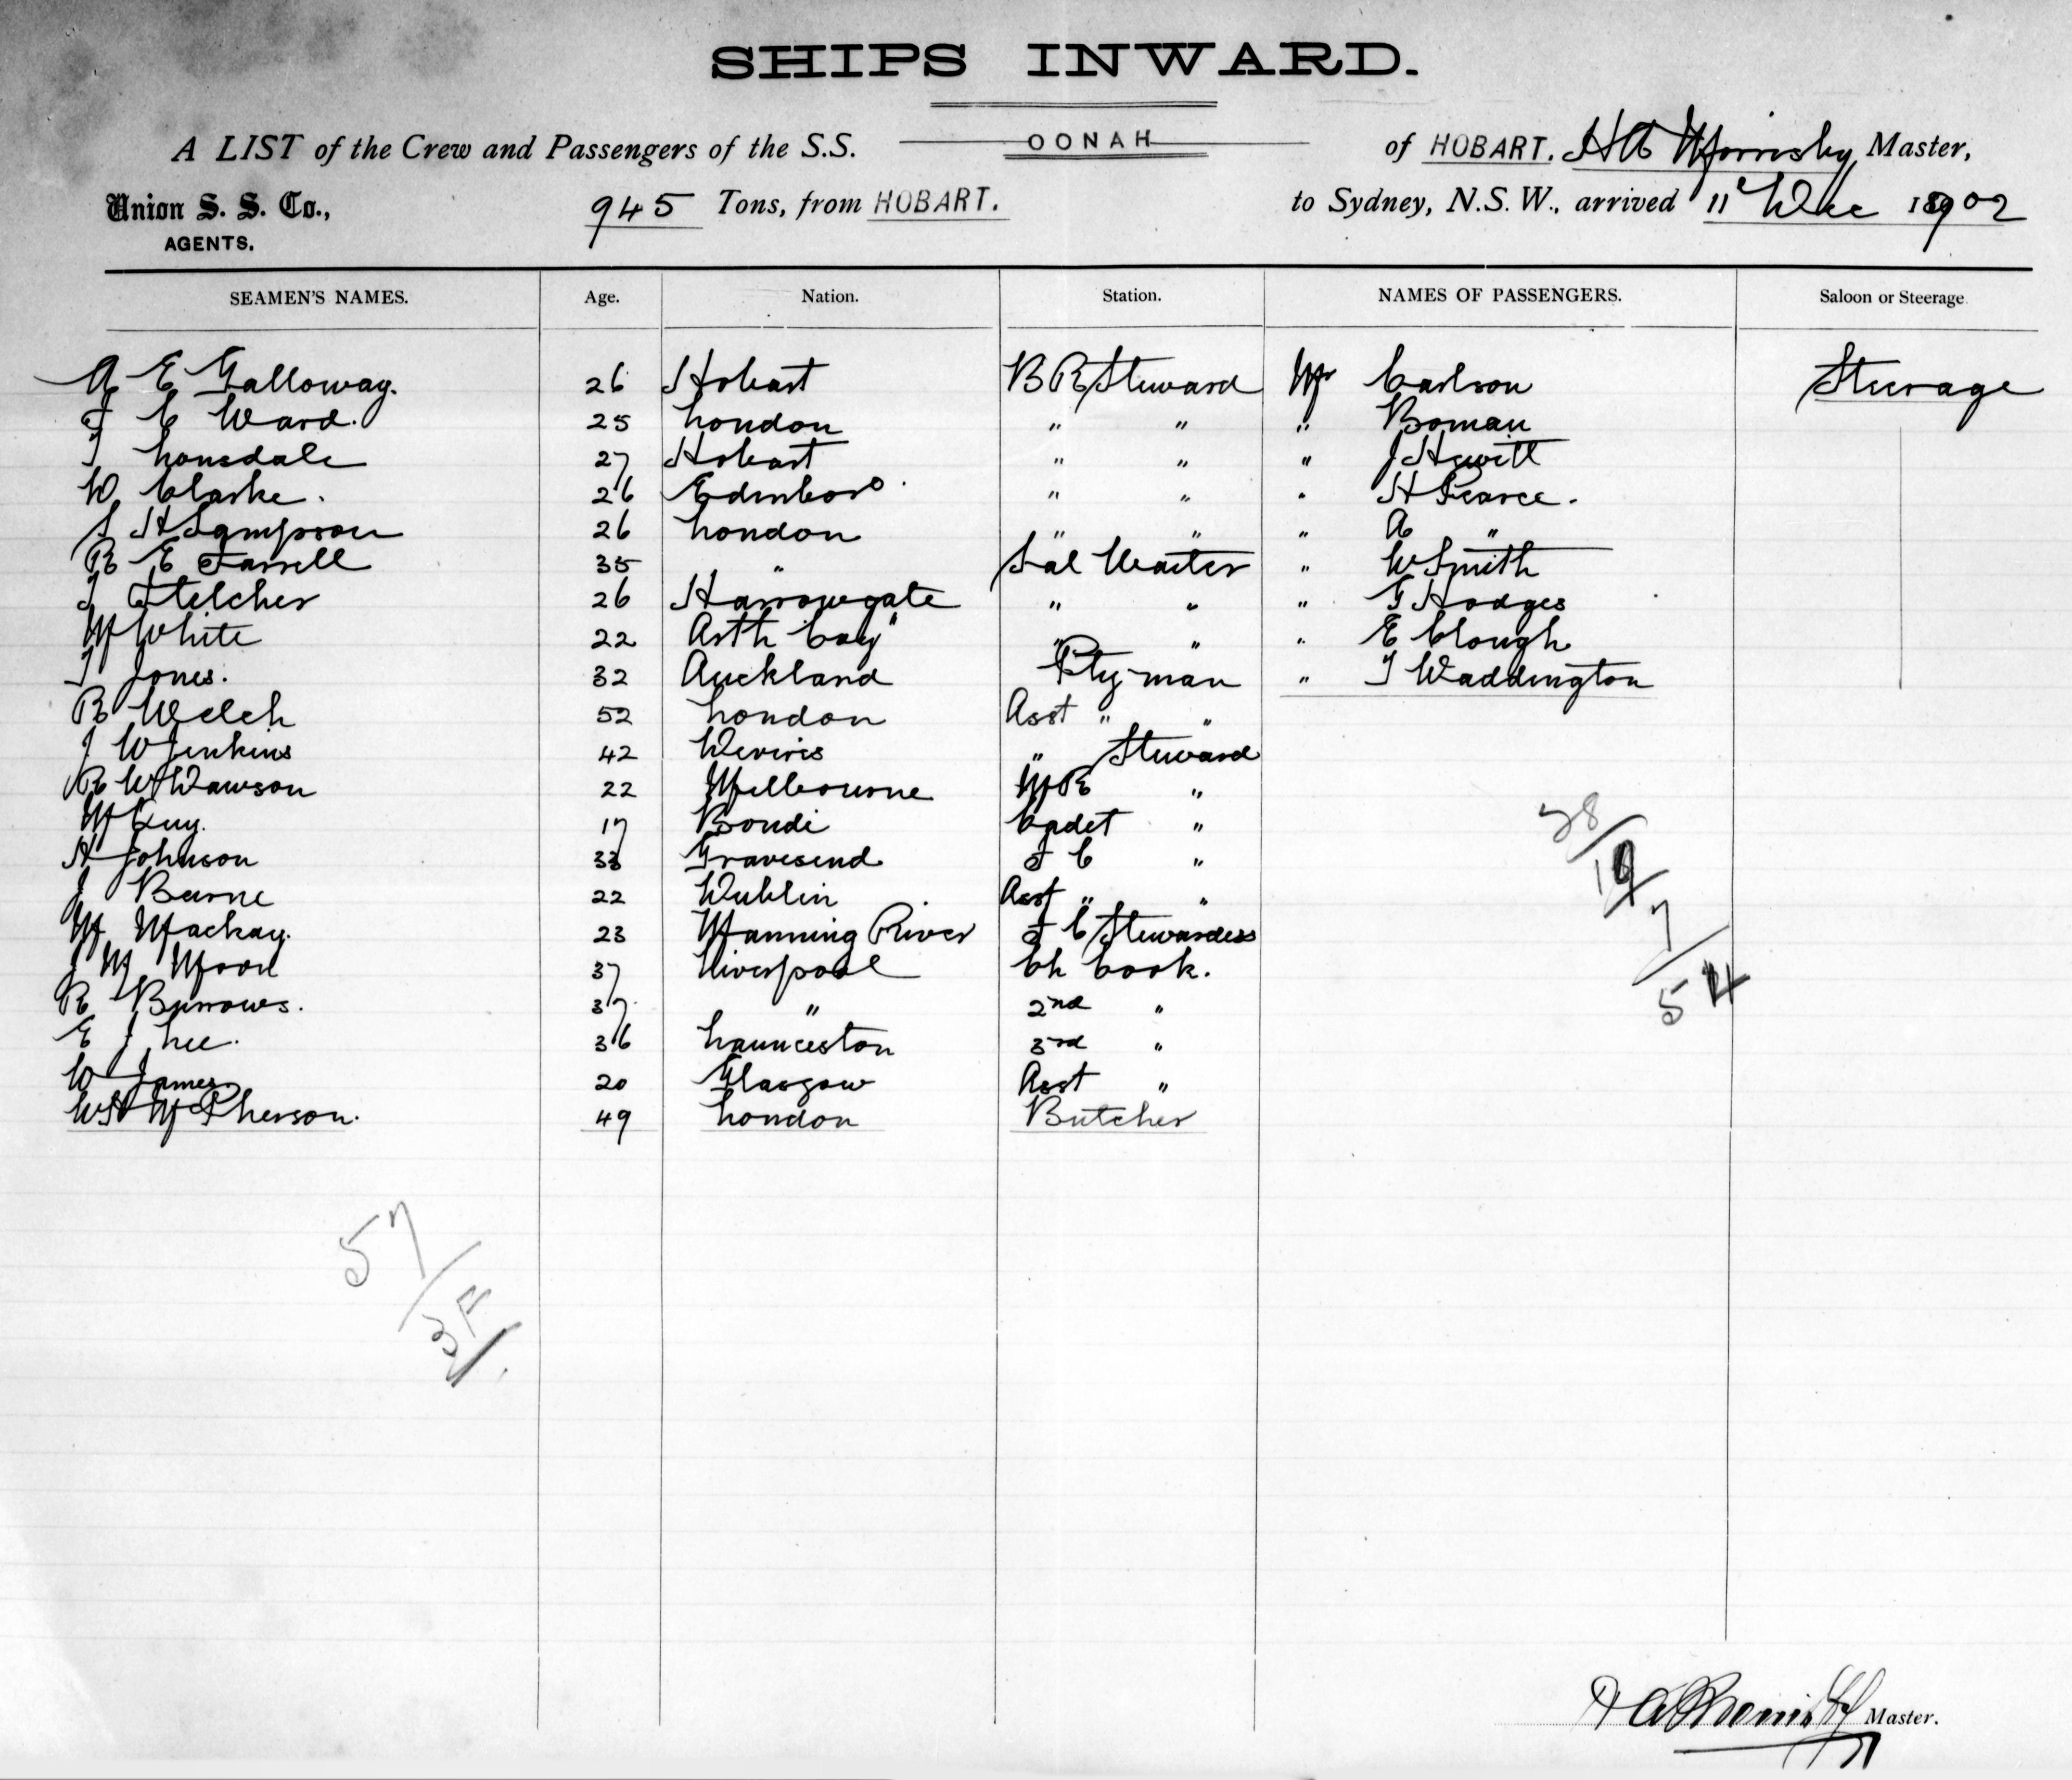 SHIPS INWARD.
A LIST of the Crew and Passengers of the S.S. OONAH of HOBART. H A Master,
Union S. S. Co., 945 Tons, from HOBART. to Sydney, N.S.W., arrived 11 Dec 1902
AGENTS.
SEAMEN'S NAMES. Age. Nation. Station. NAMES OF PASSENGERS. Saloon or Steerage
A E Galloway. 26 Hobart B R Steward Mr Carlson Steerage
F C Ward. 25 London " " " Boman
T Lonsdale 27 Hobart " " " J Hewitt
W Clarke. 26 Edinboro " " " H Pearce.
S H Sampson 26 London " " " A "
R E Farrell 35 " Sal Waiter " W Smith
T Fletcher 26 Harrowgate " " " G Hodges
M White 22 " " " E Clough
T Jones. 32 Auckland Pty man " T Waddington
R Welch 52 London Asst " "
J W Jenkins 42 " Steward
R W Dawson 22 Melbourne M R "
M Guy. 17 Bondi Cadet "
H Johnson 33 Gravesend F C "
J Burne 22 Dublin Asst " "
M Mackay. 23 Manning River F C Stewardess
J M Moon 37 Liverpool Ch Cook.
R Burrows. 37 " 2nd "
E J Lee. 36 Launceston 3rd "
W James 20 Glasgow Asst "
W H McPherson. 49 London Butcher
38
19
7
54
57
3F
Master.